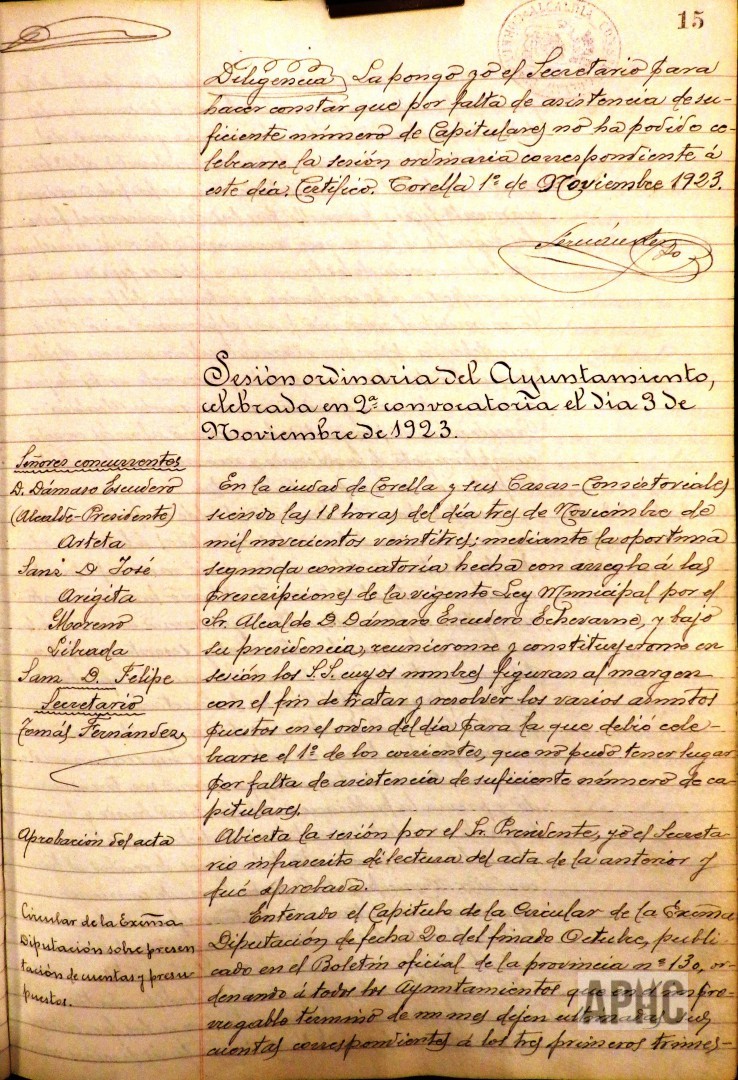 15
Diligencia, La pongo yo el Secretario para
hacer constar que por falta de asistencia de su-
ficiente número de Capitulares no ha podido ce-
lebrarse la sesión ordinaria correspondiente á
este día. Certifico. Corella 1º de Noviembre 1923.
Sesión ordinaria del Ayuntamiento,
celebrada en 2ª convocatoria el día 3 de
Noviembre de 1923.
Señores concurrentes
D. Dámaso Escudero
(Alcalde-Presidente)
Arteta
Sanz D. José
Arigita
Moreno
Librada
Sanz D. Felipe
Secretario
Tomás Fernández
En la ciudad de Corella y sus Casas-Consistoriales
siendo las 18 horas del día tres de Noviembre de
mil novecientos veintitres; mediante la oportuna
segunda convocatoria hecha con arreglo á las
prescripciones de la vigente Ley Municipal por el
Sr. Alcalde D. Dámaso Escudero Echevarne, y bajo
su presidencia, reunieronse y constituyeronse en
sesión los S.S. cuyos nombres figuran al margen
con el fin de tratar y resolver los varios asuntos
puestos en el orden del día para la que debió cele-
brarse el 1º de los corrientes, que no pudo tener lugar
por falta de asistencia de suficiente número de ca-
pitulares.
Aprobación del acta
Abierta la sesión por el Sr. Presidente, yo el Secreta-
rio infrascrito di lectura del acta de la anterior y
fué aprobada.
Circular de la Exima
Diputación sobre presen
tación de cuentas y presu
puestos.
Enterado el Capitulo de la Circular de la Exima
Diputación de fecha 20 del finado Octubre, publi-
cado en el Boletín oficial de la provincia nº 130, or-
denando á todos los Ayuntamientos que en el impro-
rrogable término de un mes dejen sus
cuentas correspondientes á los tres primeros trimes-
APHC